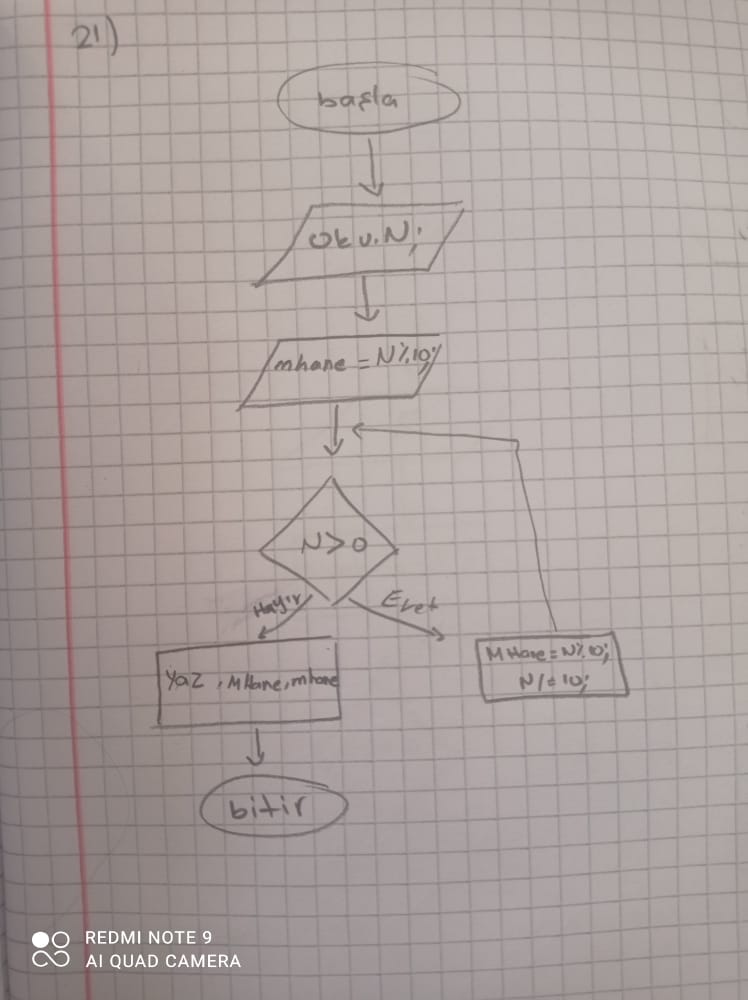 21)
başla
Oku,N;
mhane = N%10;
N>0
Hayır
Evet
MHane=N%10;
N/=10;
Yaz , MHane, mhane
bitir
REDMI NOTE 9
AI QUAD CAMERA